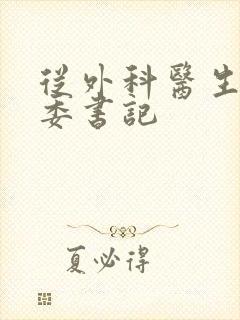 從外科醫生
委書記
夏必得